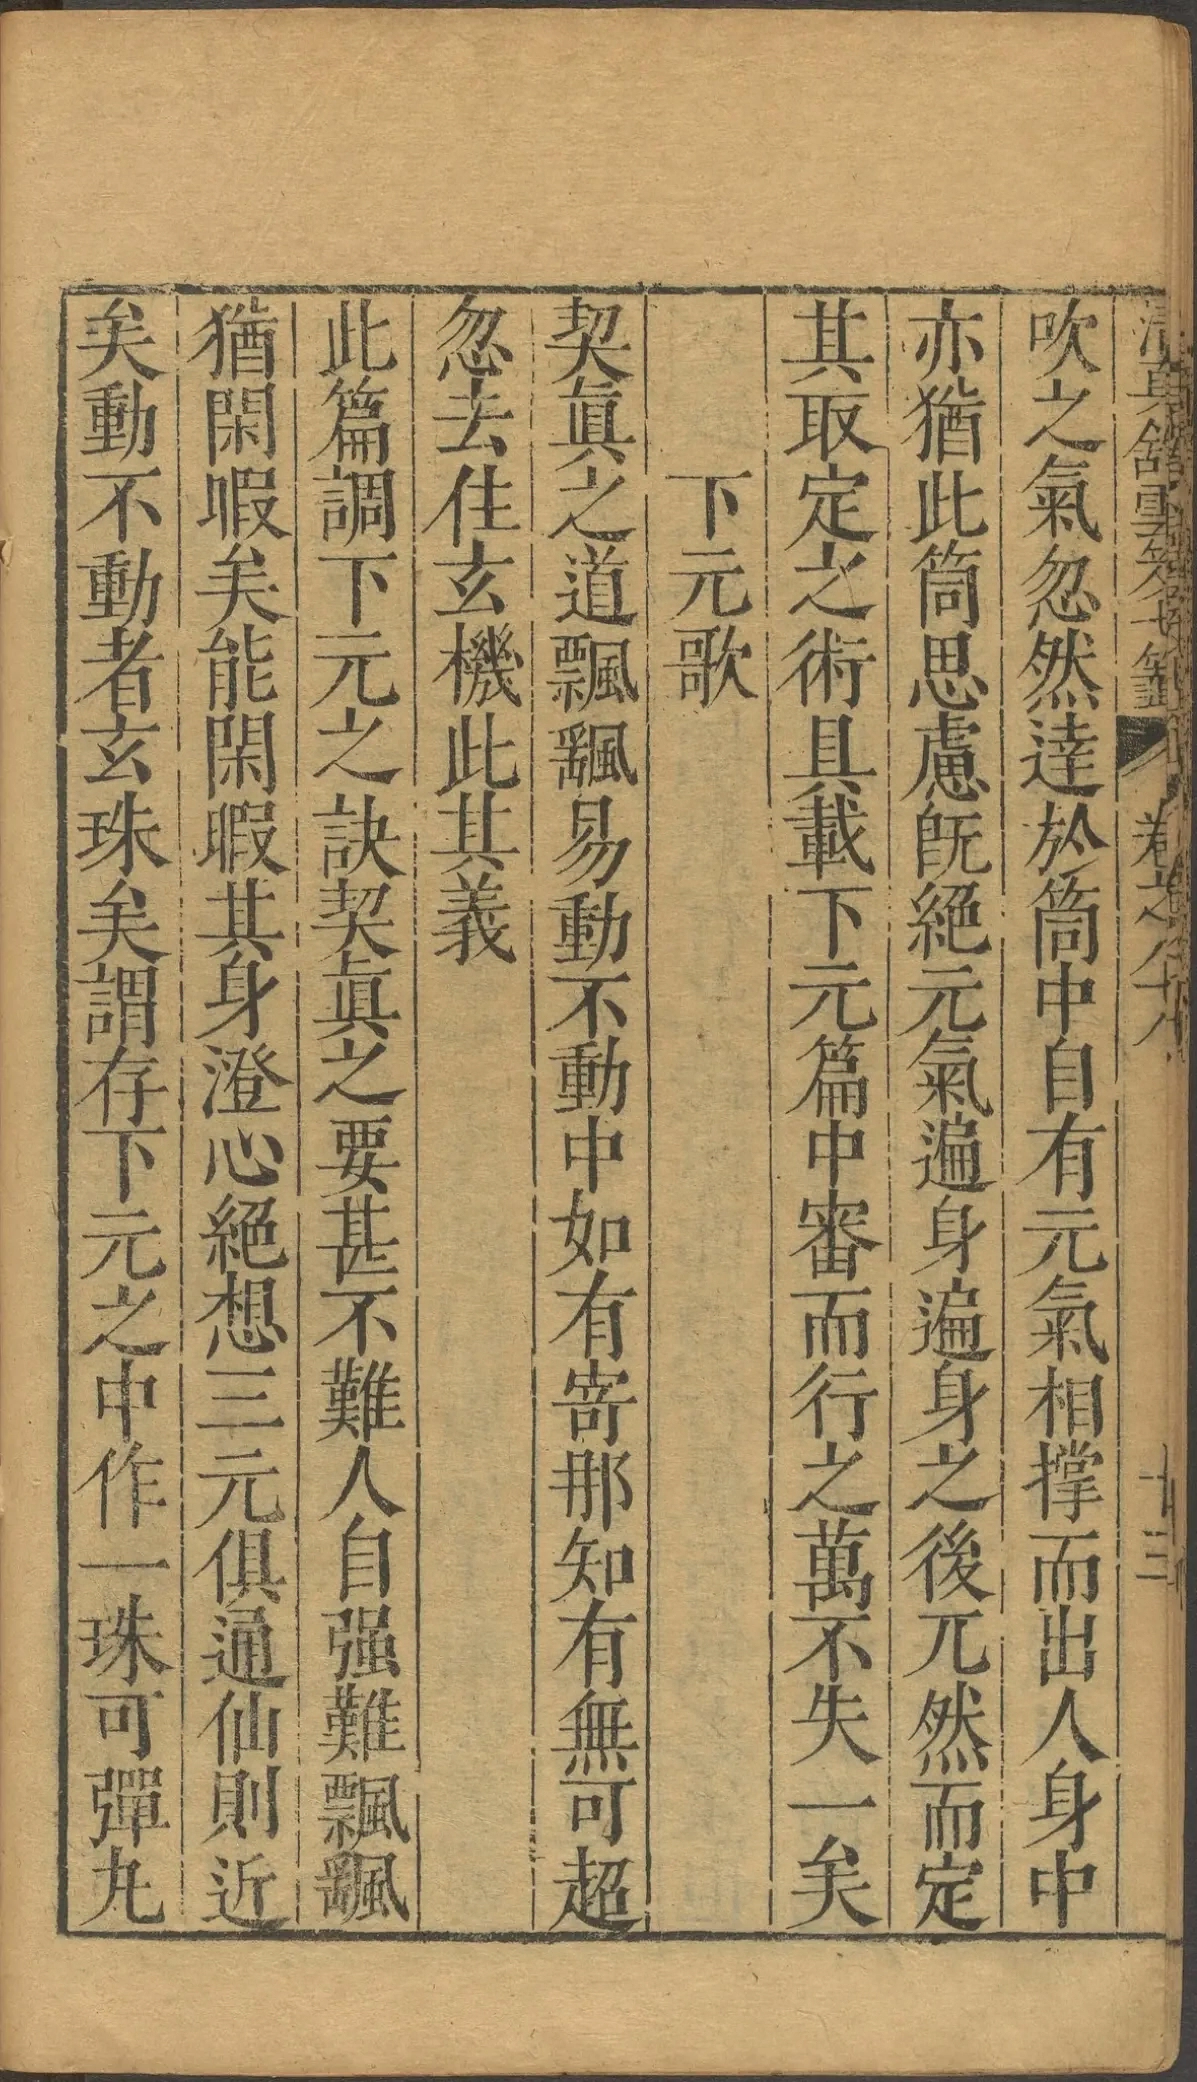 清真館雲笈七籤 卷之八十八 十三
吹之氣忽然達於筒中自有元氣相撐而出人身中
亦猶此筒思慮旣絕元氣遍身遍身之後兀然而定
其取定之術具載下元篇中審而行之萬不失一矣
下元歌
契眞之道飄飖易動不動中如有寄那知有無可超
忽去住玄機此其義
此篇調下元之訣契眞之要甚不難人自强難飄飖
猶閑暇矣能閑暇其身澄心絕想三元俱通仙則近
矣動不動者玄珠矣謂存下元之中作一珠可彈丸